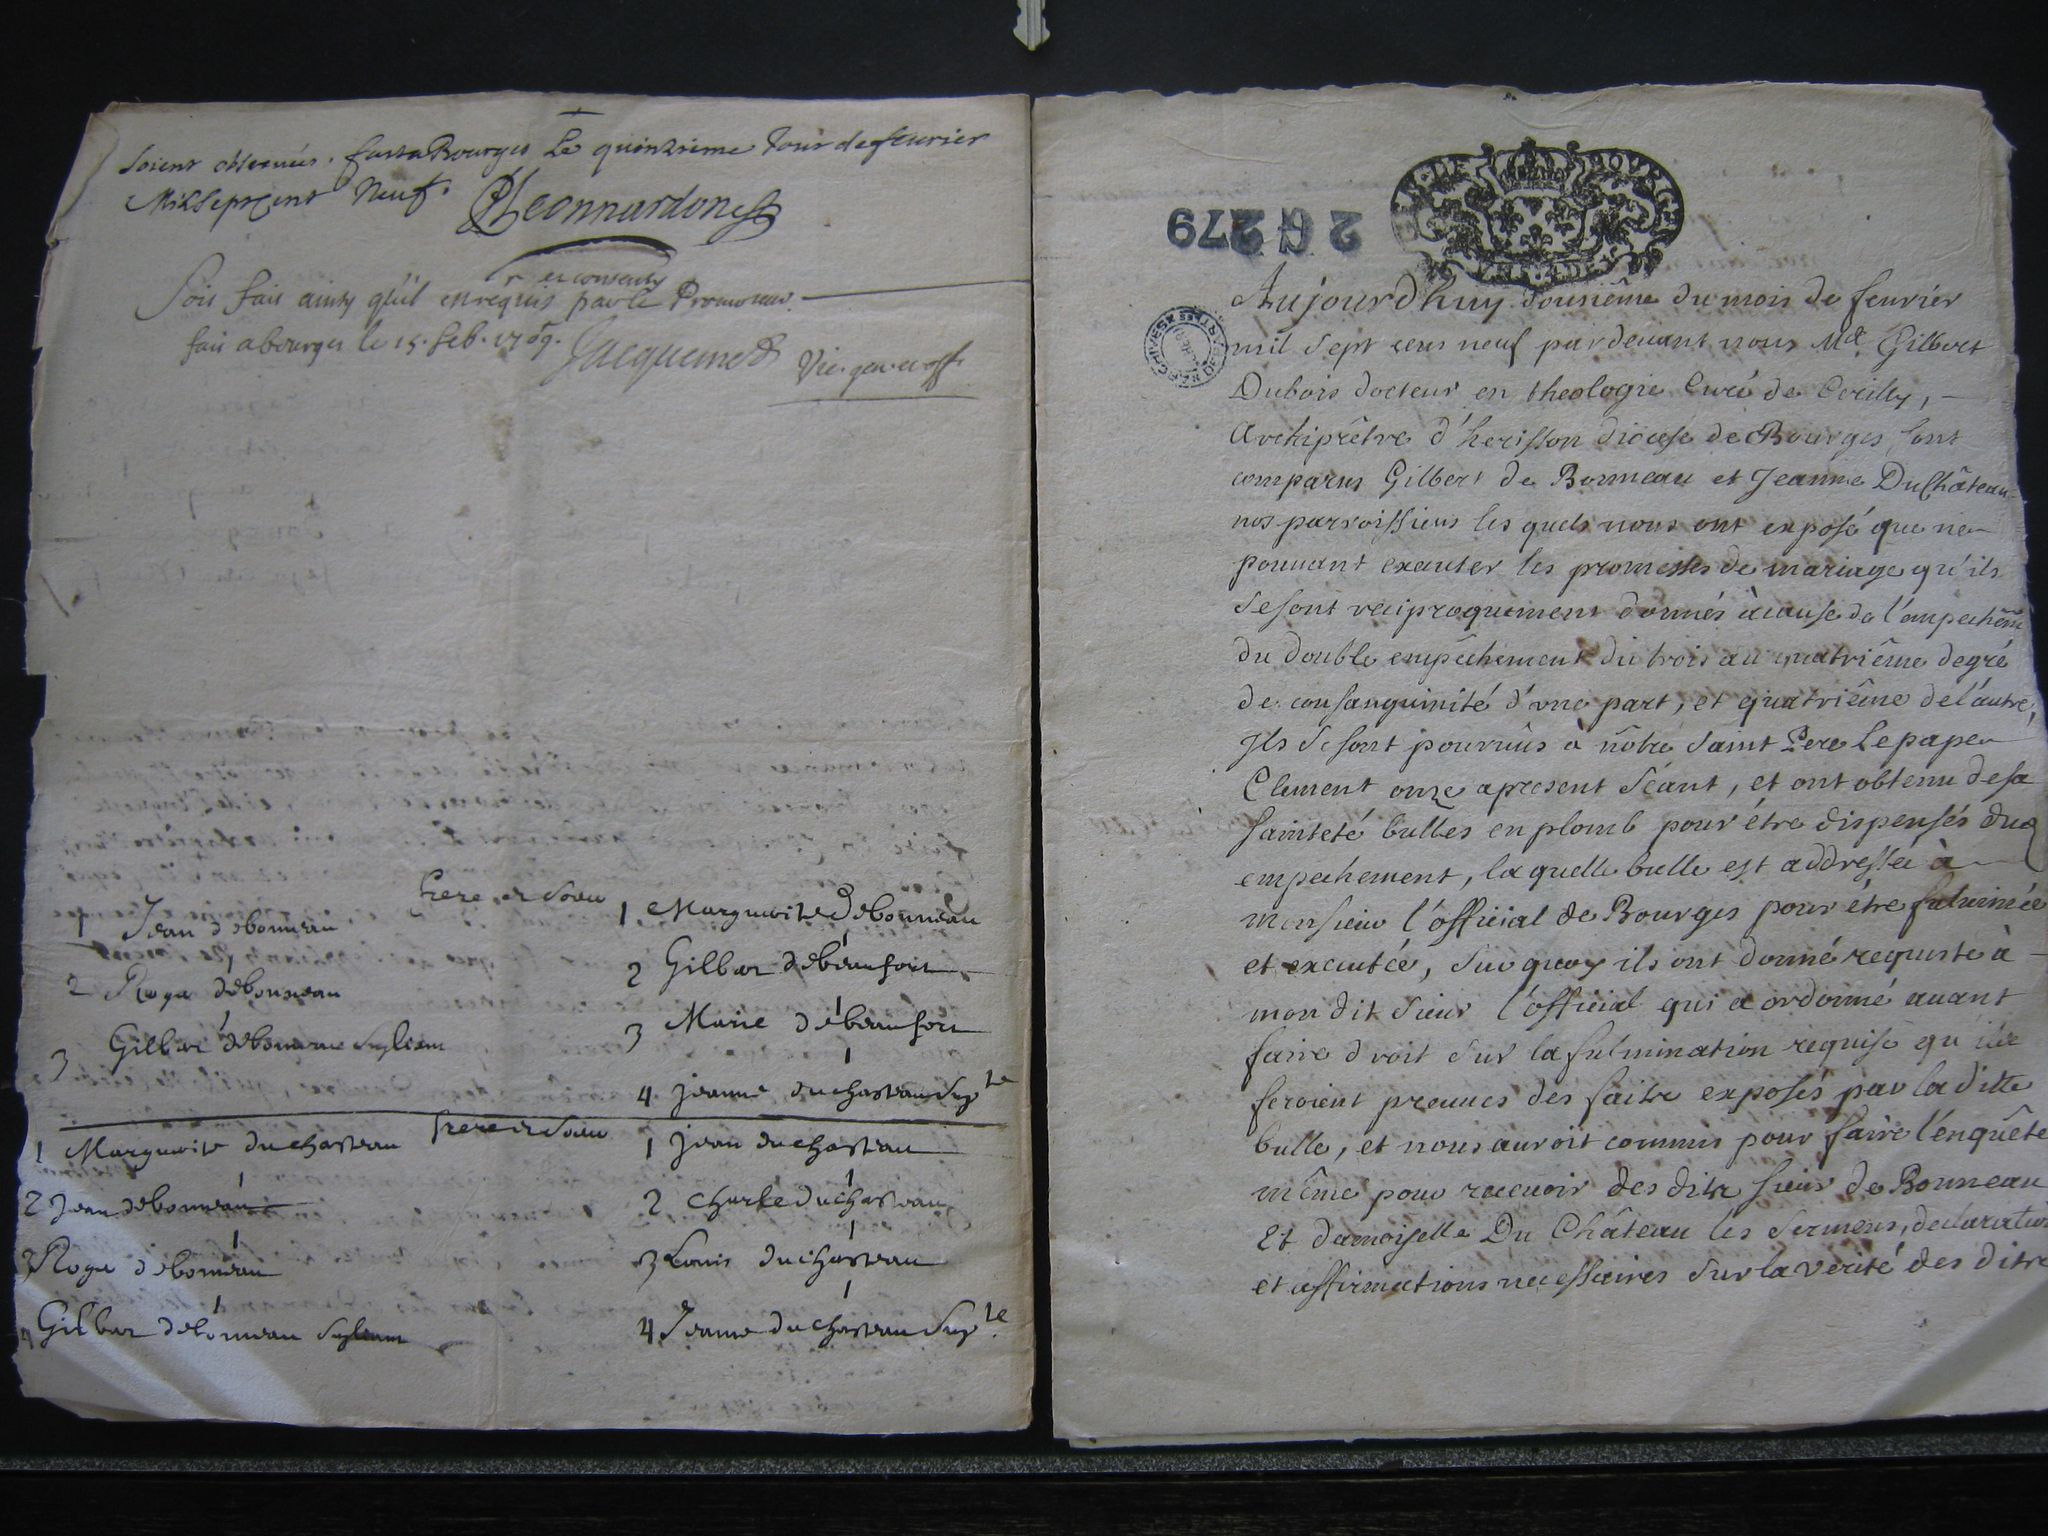 soient observées. fait a Bourges Le quinzieme Jour de feurier
Mil sept cent Neuf.
Leonnardon
et consenty
Soit fait ainsy qu'il est requis par le Promoteur.
fait a bourges le 15. feb. 1709.
Jacquemet Vic. gen. et off.
frere et soeur
1 Jean debonneau
2 Roge debonneau
3 Gilber debonneau supliant
1 Marguerite Debonneau
2 Gilber debeaufort
3 Marie debeaufort
4 Jeanne duchasteau supte
frere et soeur
1 Marguerite duchasteau
2 Jean debonneau
3 Roge debonneau
4 Gilber debonneau supliant
1 Jean duchasteau
2 Charle duchasteau
3 Louis duchasteau
4 Jeanne duchasteau supte
2 G 279
Aujourdhuy dousiême du mois de feurier
mil sept cens neuf pardeuant nous Me. Gilbert
Dubois docteur en theologie Curé de Cerilly,
Archiprêtre d'herisson diocese de Bourges, sont
comparus Gilbert de Bonneau et Jeanne Duchâteau
nos parroissiens les quels nous ont exposé que ne
pouuant executer les promesses de mariage qu'ils
se sont reciproquement donnés à cause de l'empechem
du double empêchement du trois au quatriême degré
de consanguinité d'une part, et quatriême de l'autre,
Ils se sont pourvûs à nôtre saint Pere le pape
Clement onze apresent séant, et ont obtenu de sa
sainteté bulles en plomb pour être dispensés dud
empechement, laquelle bulle est addressée à
monsieur l'official de Bourges pour être fulminée
et executée, sur quoy ils ont donné requeste à
mon dit sieur l'official qui a ordonné auant
faire droit sur la fulmination requise qu'ils
feroient preuues des faits exposés par la ditte
bulle, et nous auroit commis pour faire l'enquête
même pour receuoir des dits sieur de Bonneau
Et damoiselle Du Château les sermens, declaration
et affirmations necessaires sur la verité des dits